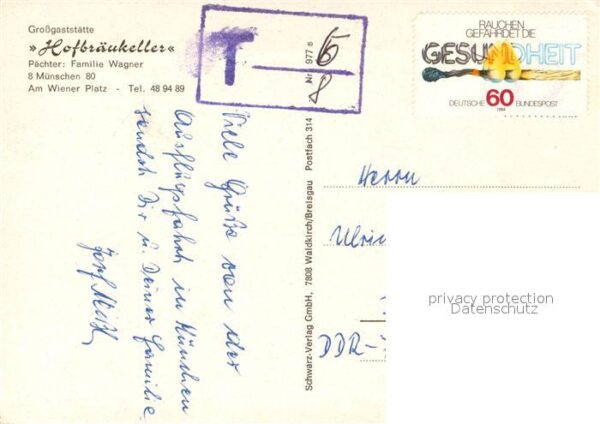 Großgaststätte
»Hofbräukeller«
Pächter: Familie Wagner
8 Münschen 80
Am Wiener Platz - Tel. 48 94 89
T
8
Nr. 977 s
RAUCHEN
GEFÄHRDET DIE
GESUNDHEIT
DEUTSCHE 60 BUNDESPOST
1984
Viele Grüße von der
Ausflugsfahrt in München
sendet Dir u. Deiner Familie
Josef
Schwarz-Verlag GmbH, 7808 Waldkirch/Breisgau Postfach 314
Herrn
Ulric
DDR-
privacy protection
Datenschutz